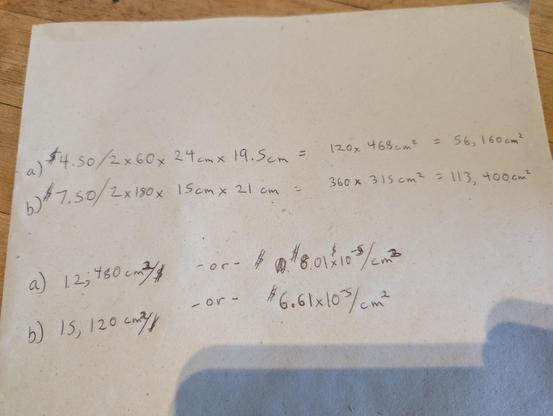 a) $4.50/2x60x 24cm x 19.5cm = 120x 468cm² = 56,160cm²
b) $7.50/2x180x 15cm x 21 cm = 360x 315cm² = 113,400cm²
a) 12,480 cm²/$ -or- $8.01x10⁻⁵/cm²
b) 15,120 cm²/$ -or- $6.61x10⁻⁵/cm²